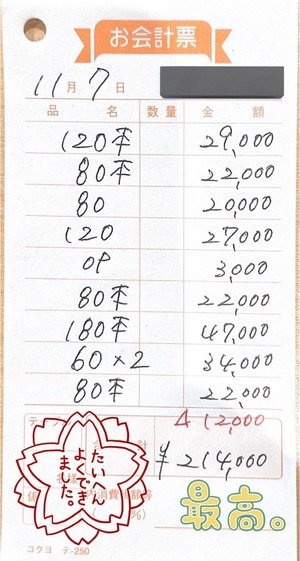 お会計票
11月7日
品名 数量 金額
120本 29,000
80本 22,000
80 20,000
120 27,000
OP 3,000
80本 22,000
180本 47,000
60×2 34,000
80本 22,000
テ
計
△12,000
¥214,000
たいへん
よくでき
ました。
係
消費
%)
最高。
コクヨ テ-250